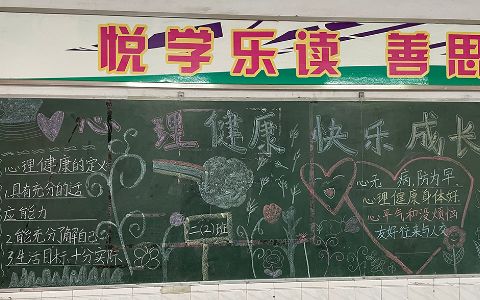 悦学乐读 善思
心理健康 快乐成长
心理健康的定义
1.具有充分的适
应能力
2能充分了解自己
3生活目标十分实际
二(2)班
心无病,防为早
心理健康身体好
心平气和没烦恼
友好往来与人交